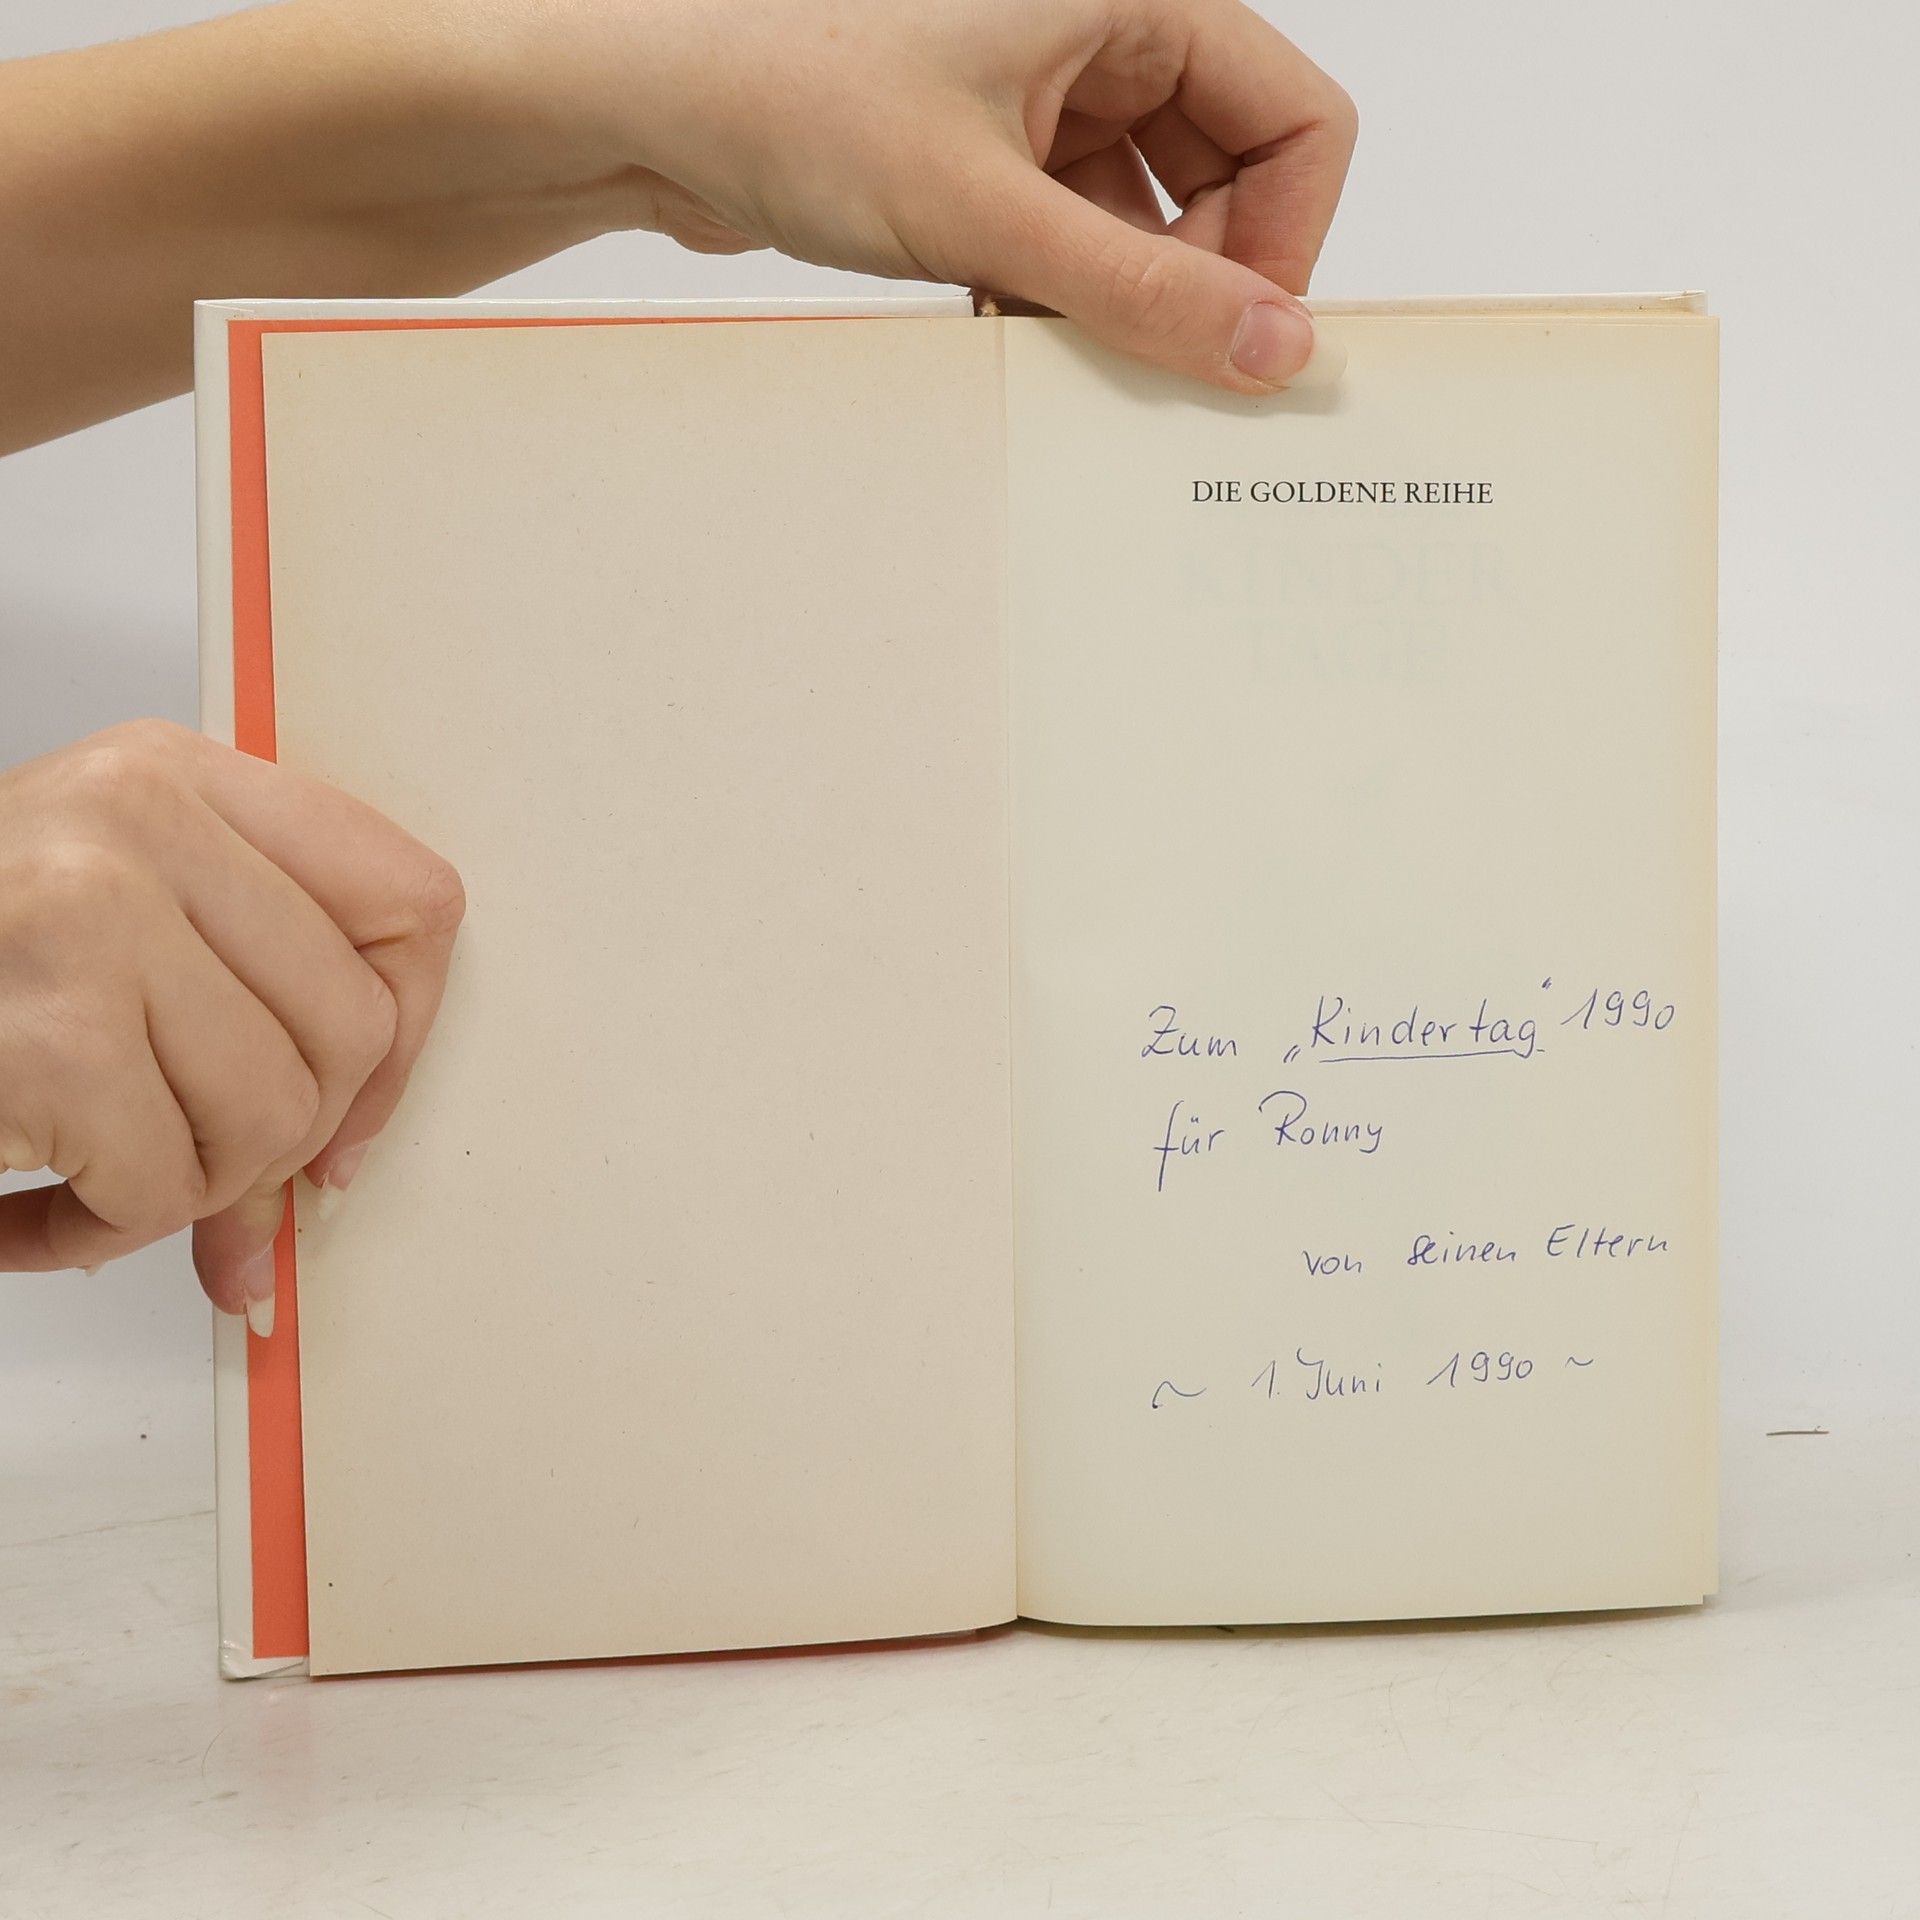 DIE GOLDENE REIHE
KINDER
TAGE
Zum „Kindertag“ 1990
für Ronny
von seinen Eltern
~ 1. Juni 1990 ~